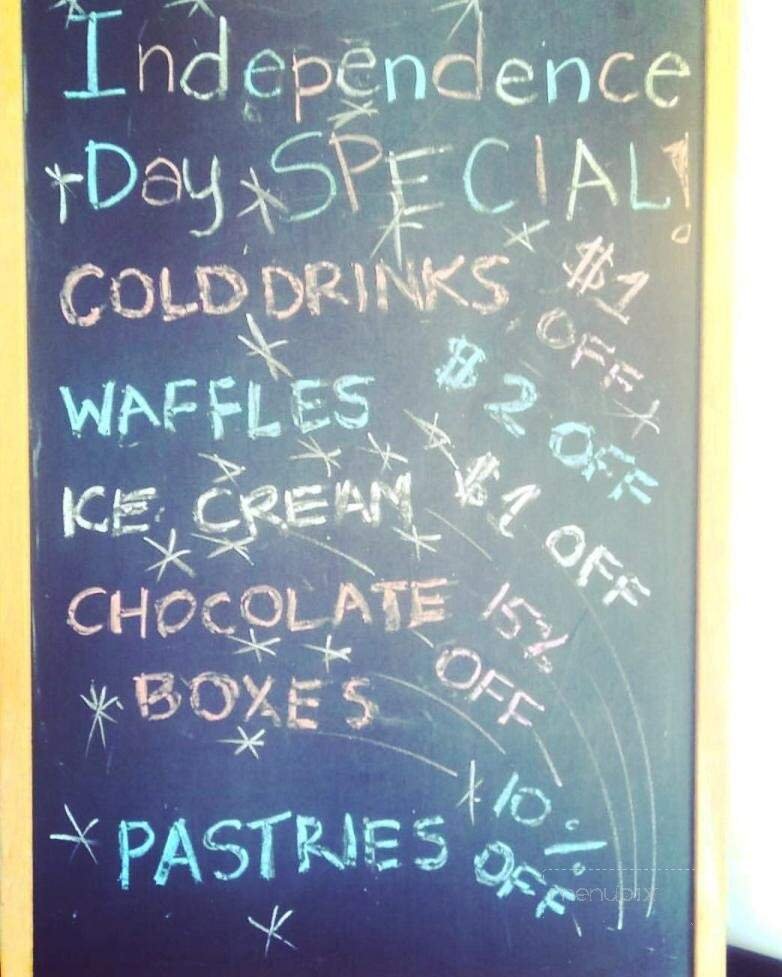 Independence
Day SPECIAL!
COLD DRINKS $1 OFF
WAFFLES $2 OFF
ICE CREAM $1 OFF
CHOCOLATE BOXES 15% OFF
PASTRIES 10% OFF
menupix